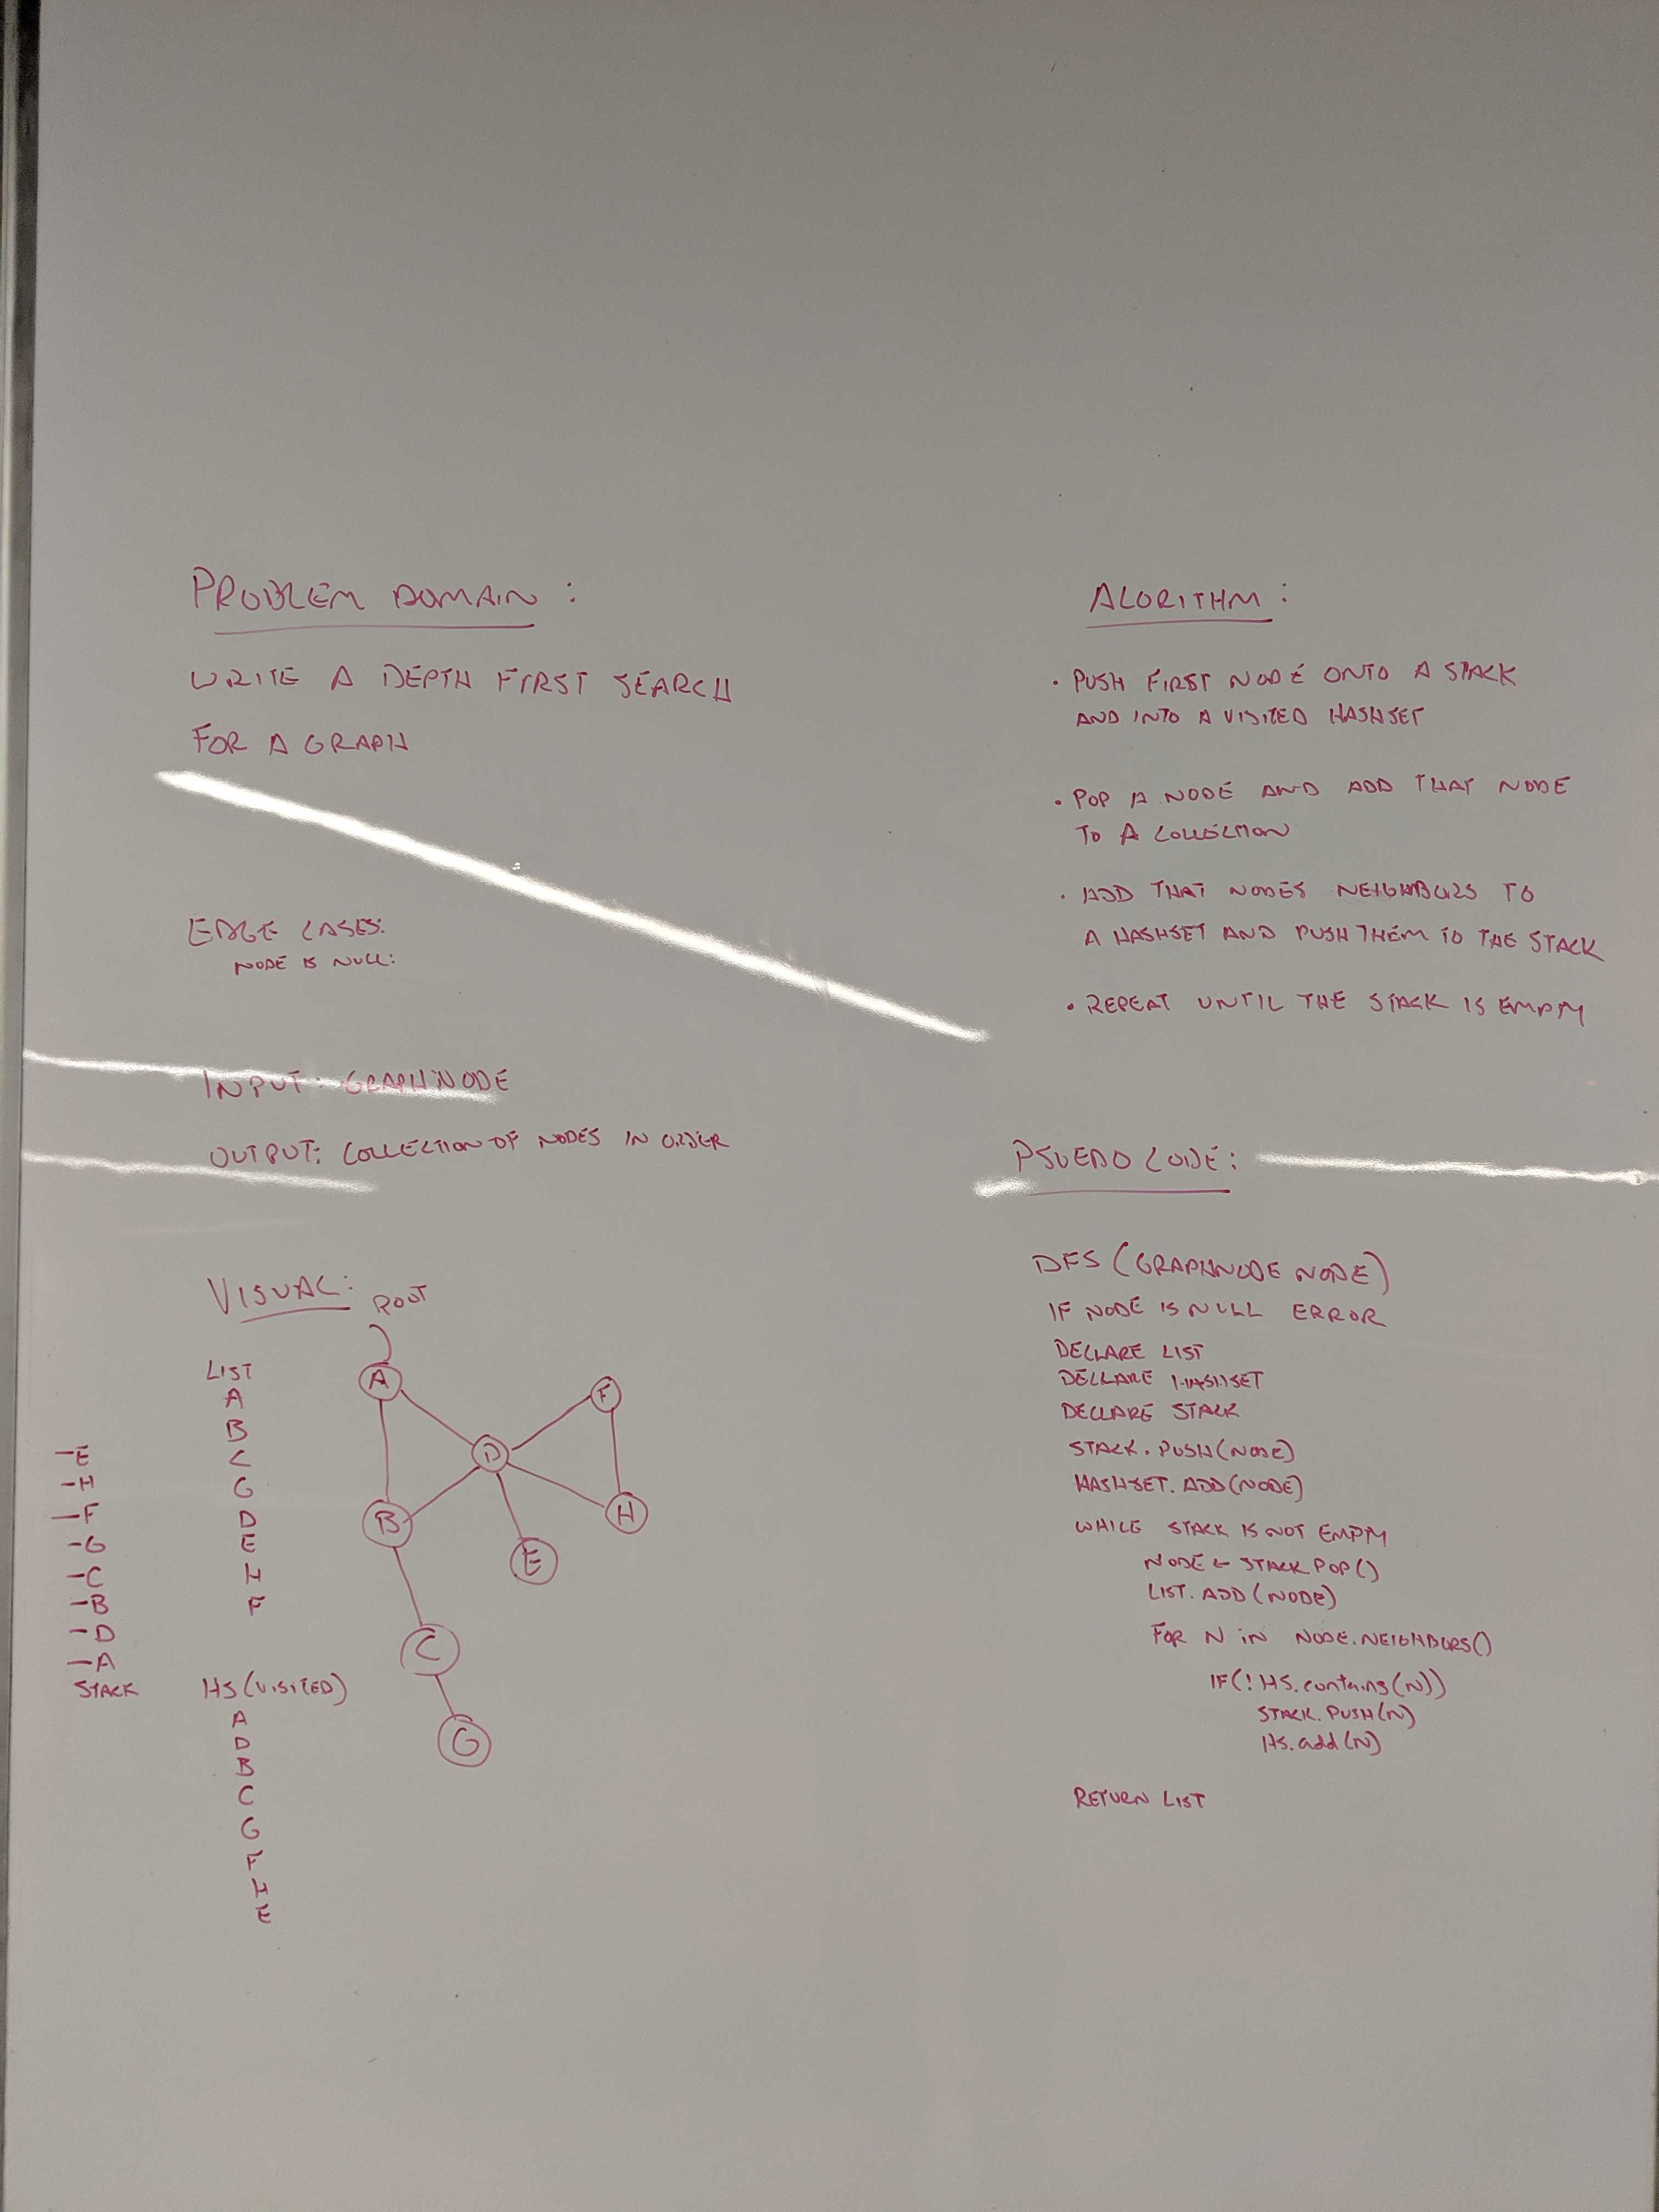 PROBLEM DOMAIN:
WRITE A DEPTH FIRST SEARCH
FOR A GRAPH
EDGE CASES:
NODE IS NULL:
INPUT: GRAPHNODE
OUTPUT: COLLECTION OF NODES IN ORDER
VISUAL:
ROOT
LIST
A
B
C
G
D
E
H
F
-E
-H
-F
-G
-C
-B
-D
-A
STACK
HS(VISITED)
A
D
B
C
G
F
H
E
A
F
D
B
H
E
C
G
ALORITHM:
• PUSH FIRST NODE ONTO A STACK
AND INTO A VISITED HASHSET
• POP A NODE AND ADD THAT NODE
TO A COLLECTION
• ADD THAT NODES NEIGHBORS TO
A HASHSET AND PUSH THEM TO THE STACK
• REPEAT UNTIL THE STACK IS EMPTY
PSUEDO CODE:
DFS (GRAPHNODE NODE)
IF NODE IS NULL ERROR
DECLARE LIST
DECLARE HASHSET
DECLARE STACK
STACK.PUSH(NODE)
HASHSET.ADD(NODE)
WHILE STACK IS NOT EMPTY
NODE ← STACK.POP()
LIST.ADD(NODE)
FOR N IN NODE.NEIGHBORS()
IF(!HS.contains(N))
STACK.PUSH(N)
HS.add(N)
RETURN LIST